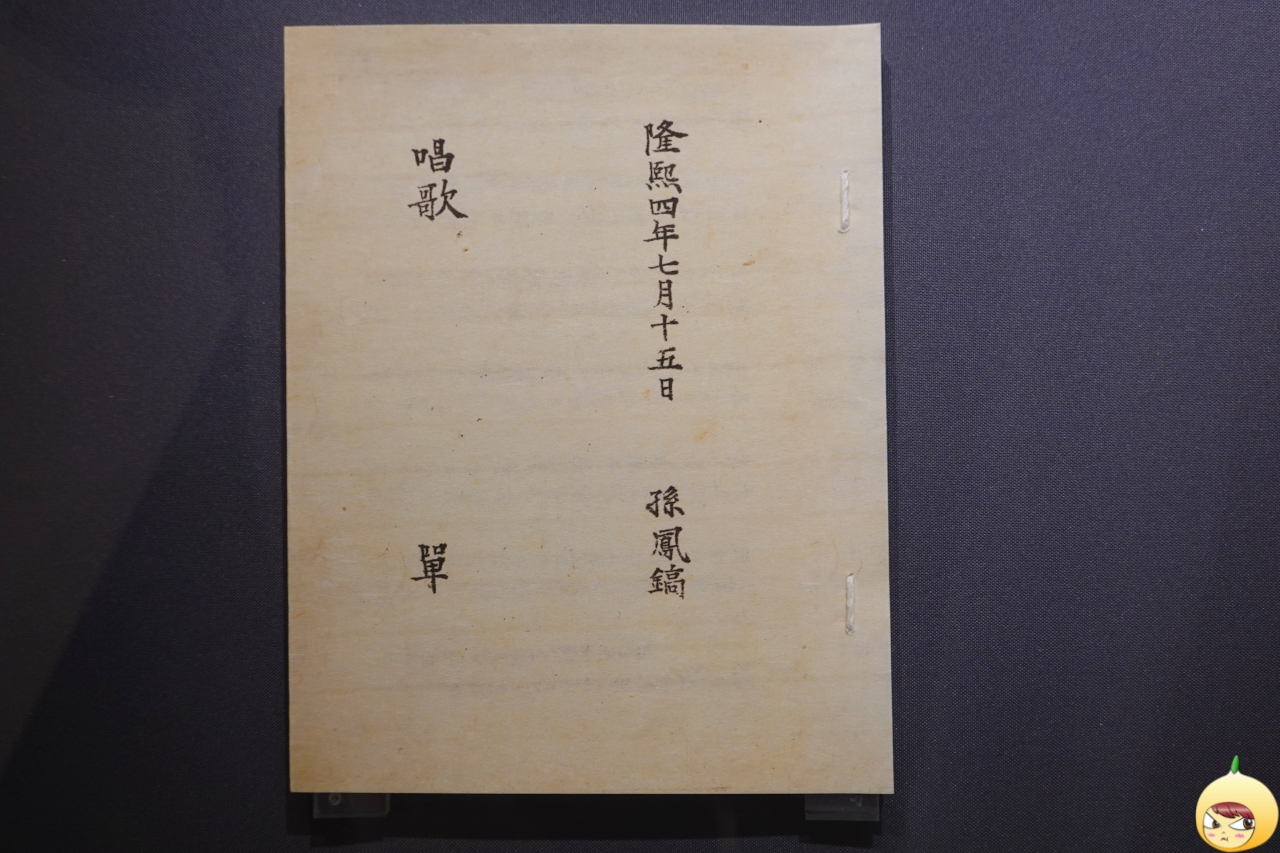 隆熙四年七月十五日 孫鳳鎬
唱歌 單